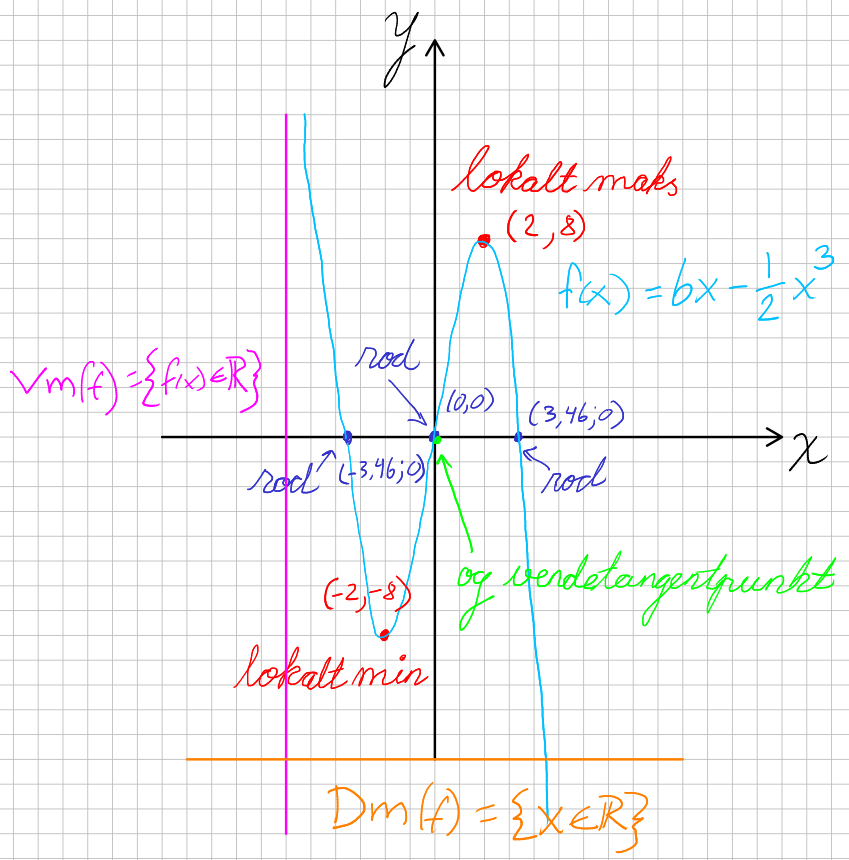 y
lokalt maks
(2,8)
f(x) = 6x - 1/2 x³
rod
Vm(f) = {f(x) ∈ ℝ}
(0,0)
(3,46;0)
x
rod
(-3,46;0)
rod
og vendetangentpunkt
(-2,-8)
lokalt min
Dm(f) = {x ∈ ℝ}